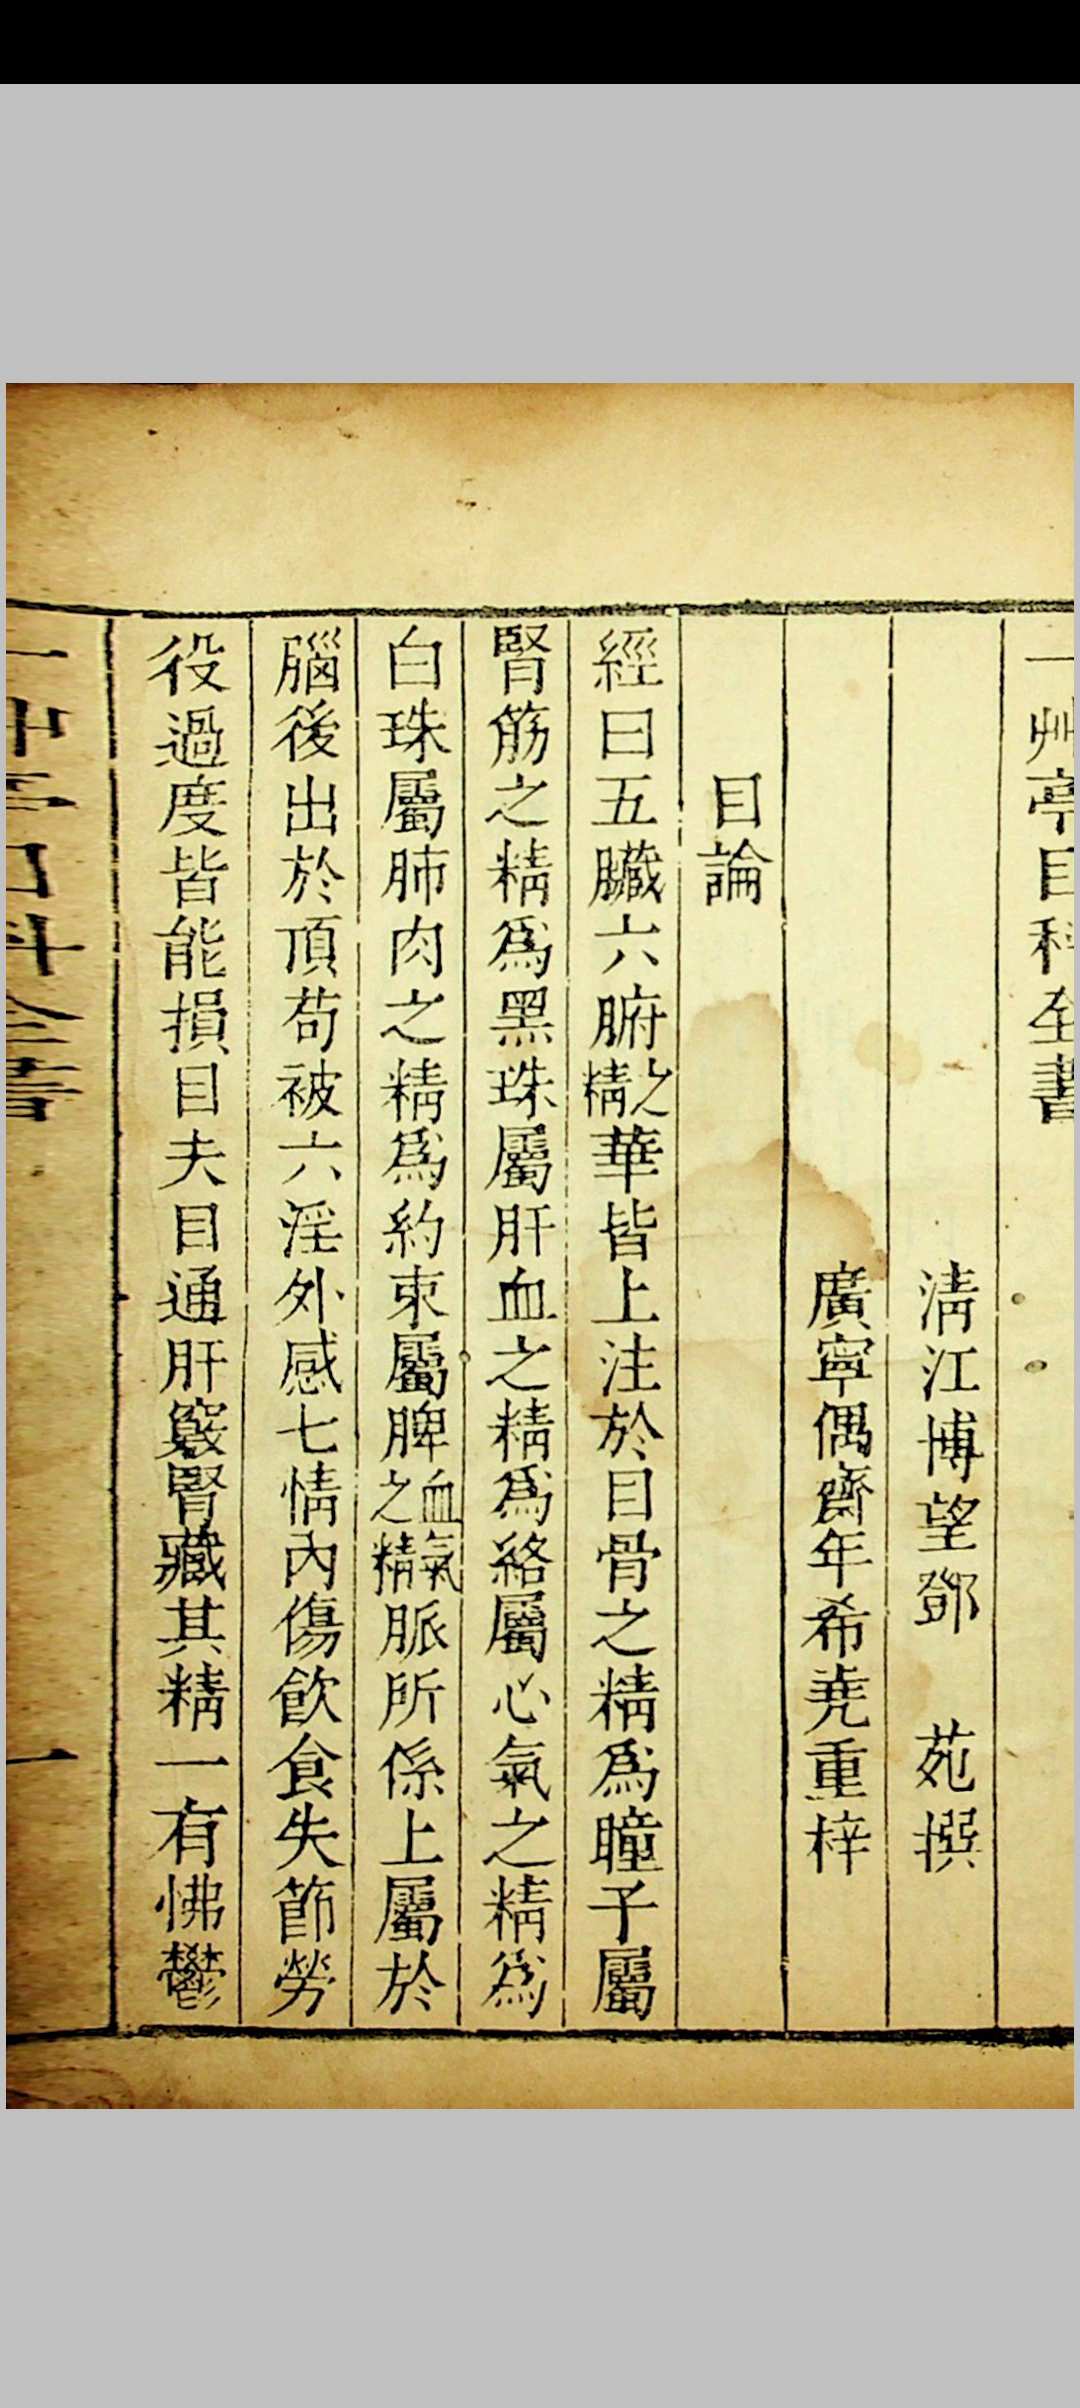 一艸亭目科全書
清江博望鄧　苑撰
廣寧偶齋年希堯重梓
目論
經曰五臟六腑之精華皆上注於目骨之精爲瞳子屬
腎筋之精爲黑珠屬肝血之精爲絡屬心氣之精爲
白珠屬肺肉之精爲約束屬脾血氣之精脈所係上屬於
腦後出於頂苟被六淫外感七情內傷飲食失節勞
役過度皆能損目夫目通肝竅腎藏其精一有怫鬱
一艸亭目科全書　一